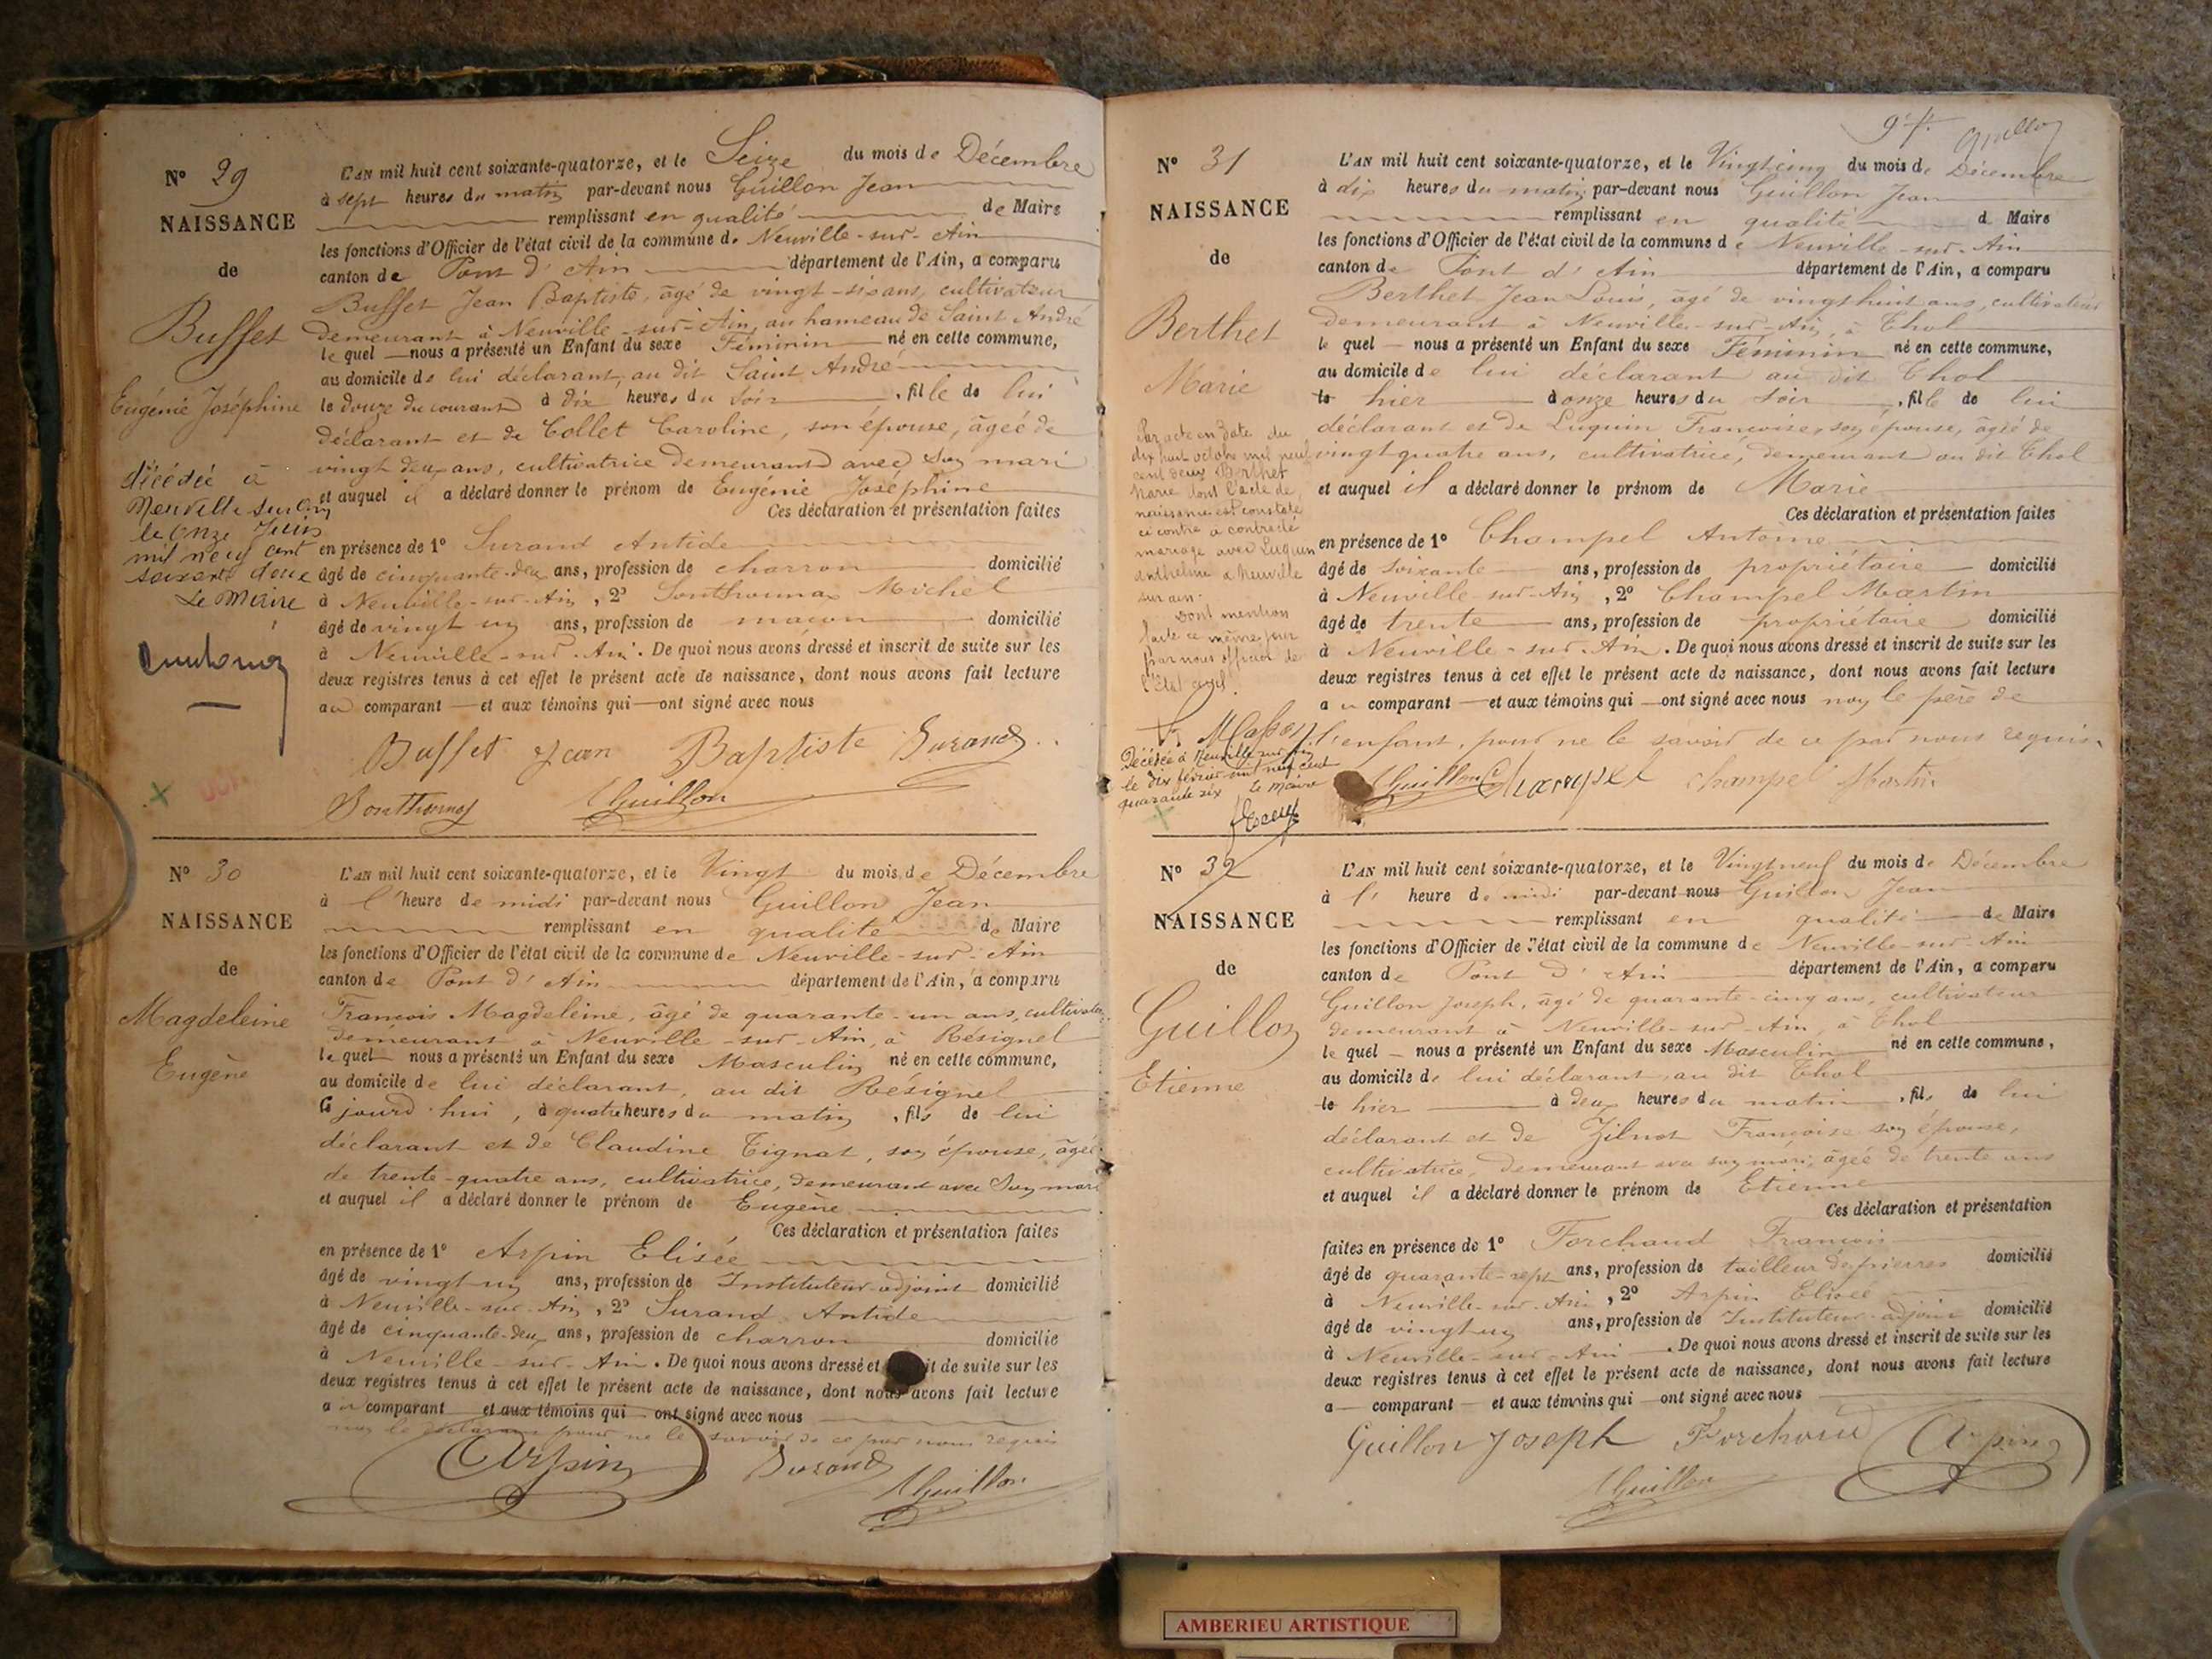 N° 29
NAISSANCE
de
Buffet
Eugénie Joséphine
décédée à
Neuville sur Ain
le onze Juin
mil neuf cent
soixante douze
Le Maire
L'AN mil huit cent soixante-quatorze, et le Seize du mois de Décembre
à sept heures du matin par-devant nous Guillon Jean
remplissant en qualité de Maire
les fonctions d'Officier de l'état civil de la commune de Neuville-sur-Ain
canton de Pont d'Ain département de l'Ain, a comparu
Buffet Jean Baptiste, âgé de vingt-six ans, cultivateur
demeurant à Neuville-sur-Ain, au hameau de Saint André
lequel nous a présenté un Enfant du sexe Féminin né en cette commune,
au domicile de lui déclarant, au dit Saint André
le douze du courant à dix heures du soir, fille de lui
déclarant et de Collet Caroline, son épouse, âgée de
vingt deux ans, cultivatrice demeurant avec son mari
et auquel il a déclaré donner le prénom de Eugénie Joséphine
Ces déclaration et présentation faites
en présence de 1° Surand Antide
âgé de cinquante-deux ans, profession de charron domicilié
à Neuville-sur-Ain, 2° Southonnax Michel
âgé de vingt un ans, profession de maçon domicilié
à Neuville-sur-Ain. De quoi nous avons dressé et inscrit de suite sur les
deux registres tenus à cet effet le présent acte de naissance, dont nous avons fait lecture
au comparant et aux témoins qui ont signé avec nous
Buffet Jean Baptiste Surand
Southonnax Guillon
N° 30
NAISSANCE
de
Magdeleine
Eugène
L'AN mil huit cent soixante-quatorze, et le Vingt du mois de Décembre
à l'heure de midi par-devant nous Guillon Jean
remplissant en qualité de Maire
les fonctions d'Officier de l'état civil de la commune de Neuville-sur-Ain
canton de Pont d'Ain département de l'Ain, a comparu
François Magdeleine, âgé de quarante-un ans, cultivateur
demeurant à Neuville-sur-Ain, à Résignel
lequel nous a présenté un Enfant du sexe Masculin né en cette commune,
au domicile de lui déclarant, au dit Résignel
ce jourd'hui, à quatre heures du matin, fils de lui
déclarant et de Claudine Tignat, son épouse, âgée
de trente-quatre ans, cultivatrice, demeurant avec son mari
et auquel il a déclaré donner le prénom de Eugène
Ces déclaration et présentation faites
en présence de 1° Arpin Elisée
âgé de vingt un ans, profession de Instituteur-adjoint domicilié
à Neuville-sur-Ain, 2° Surand Antide
âgé de cinquante-deux ans, profession de charron domicilié
à Neuville-sur-Ain. De quoi nous avons dressé et it de suite sur les
deux registres tenus à cet effet le présent acte de naissance, dont nous avons fait lecture
au comparant et aux témoins qui ont signé avec nous
non le déclarant pour ne le savoir de ce par nous requis
Arpin Surand Guillon
Guillon
N° 31
NAISSANCE
de
Berthet
Marie
Par acte en date du
dix huit octobre mil neuf
cent deux Berthet
Marie dont l'acte de
naissance est constaté
ci contre a contracté
mariage avec Luquin
Anthelme à Neuville
sur Ain.
Dont mention
faite ce même jour
par nous officier de
l'Etat civil.
Décédée à Neuville sur Ain
le dix février mil neuf cent
quarante six Le Maire
L'AN mil huit cent soixante-quatorze, et le Vingt cinq du mois de Décembre
à dix heures du matin par-devant nous Guillon Jean
remplissant en qualité d Maire
les fonctions d'Officier de l'état civil de la commune de Neuville-sur-Ain
canton de Pont d'Ain département de l'Ain, a comparu
Berthet Jean Louis, âgé de vingt huit ans, cultivateur
demeurant à Neuville-sur-Ain, à Thol
lequel nous a présenté un Enfant du sexe Féminin né en cette commune,
au domicile de lui déclarant au dit Thol
le hier à onze heures du soir, fille de lui
déclarant et de Luquin Françoise, son épouse, âgée de
vingt quatre ans, cultivatrice, demeurant au dit Thol
et auquel il a déclaré donner le prénom de Marie
Ces déclaration et présentation faites
en présence de 1° Champel Antoine
âgé de soixante ans, profession de propriétaire domicilié
à Neuville-sur-Ain, 2° Champel Martin
âgé de trente ans, profession de propriétaire domicilié
à Neuville-sur-Ain. De quoi nous avons dressé et inscrit de suite sur les
deux registres tenus à cet effet le présent acte de naissance, dont nous avons fait lecture
au comparant et aux témoins qui ont signé avec nous non le père de
l'enfant, pour ne le savoir de ce par nous requis.
Guillon Champel Champel Martin
N° 32
NAISSANCE
de
Guillon
Etienne
L'AN mil huit cent soixante-quatorze, et le Vingt neuf du mois de Décembre
à l'heure de midi par-devant nous Guillon Jean
remplissant en qualité de Maire
les fonctions d'Officier de l'état civil de la commune de Neuville-sur-Ain
canton de Pont d'Ain département de l'Ain, a comparu
Guillon Joseph, âgé de quarante-cinq ans, cultivateur
demeurant à Neuville-sur-Ain, à Thol
lequel nous a présenté un Enfant du sexe Masculin né en cette commune,
au domicile de lui déclarant, au dit Thol
le hier à deux heures du matin, fils de lui
déclarant et de Françoise son épouse,
cultivatrice, demeurant avec son mari, âgée de trente ans
et auquel il a déclaré donner le prénom de Etienne
Ces déclaration et présentation
faites en présence de 1° Forchaud François
âgé de quarante-sept ans, profession de tailleur de pierres domicilié
à Neuville-sur-Ain, 2° Arpin Elisée
âgé de vingt un ans, profession de Instituteur-adjoint domicilié
à Neuville-sur-Ain. De quoi nous avons dressé et inscrit de suite sur les
deux registres tenus à cet effet le présent acte de naissance, dont nous avons fait lecture
a comparant et aux témoins qui ont signé avec nous
Guillon Joseph Forchaud Arpin
Guillon
AMBERIEU ARTISTIQUE